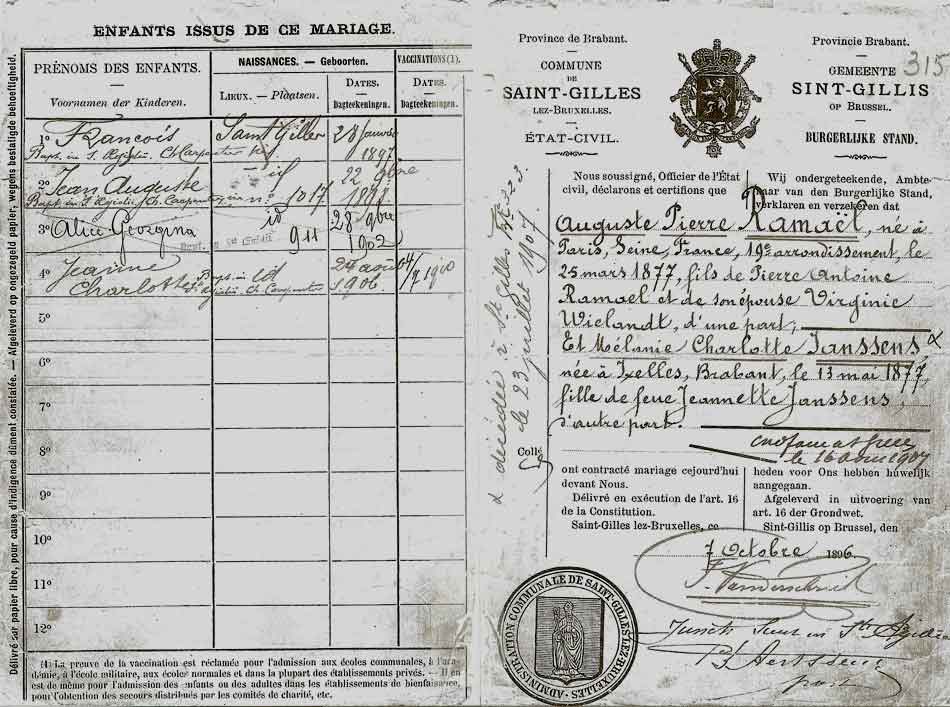 ENFANTS ISSUS DE CE MARIAGE.
PRÉNOMS DES ENFANTS.
Voornamen der Kinderen.
NAISSANCES. — Geboorten.
LIEUX. — Plaatsen.
DATES.
Dagteekeningen.
VACCINATIONS (1).
DATES.
Dagteekeningen.
1° François Saint Gilles 28 janvier
1897
2° Jean Auguste id 22
1017
3° Alice Georgina id 28 9bre
911 1902
4° Jeanne id 24 août
Charlotte 1906
5°
6°
7°
8°
9°
10°
11°
12°
(1) La preuve de la vaccination est réclamée pour l'admission aux écoles communales, à l'aca-
démie, à l'école militaire, aux écoles normales et dans la plupart des établissements privés. — Il en
est de même pour l'admission des enfants ou des adultes dans les établissements de bienfaisance,
pour l'obtention des secours distribués par les comités de charité, etc.
Délivré sur papier libre, pour cause d'indigence dûment constatée. — Afgeleverd op ongezegeld papier, wegens bestatigde behoeftigheid.
315
Province de Brabant.
COMMUNE
DE
SAINT-GILLES
LEZ-BRUXELLES.
ÉTAT-CIVIL.
Provincie Brabant.
GEMEENTE
SINT-GILLIS
OP BRUSSEL.
BURGERLIJKE STAND.
Nous soussigné, Officier de l'État
civil, déclarons et certifions que
Wij ondergeteekende, Ambte-
naar van den Burgerlijke Stand,
verklaren en verzekeren dat
Auguste Pierre Ramaël, né à
Paris, Seine, France, 19e arrondissement, le
25 mars 1877, fils de Pierre Antoine
Ramael et de son épouse Virginie
Wielandt, d'une part;
Et Mélanie Charlotte Janssens,
née à Ixelles, Brabant, le 13 mai 1877,
fille de feue Jeannette Janssens,
d'autre part.
le 16 août 1907
décédée à St Gilles
le 23 juillet 1907.
Colls
ont contracté mariage cejourd'hui
devant Nous.
Délivré en exécution de l'art. 16
de la Constitution.
Saint-Gilles lez-Bruxelles, ce
heden voor Ons hebben húwelijk
aangegaan.
Afgeleverd in uitvoering van
art. 16 der Grondwet.
Sint-Gillis op Brussel, den
7 Octobre 1896
ADMINISTRATION COMMUNALE DE SAINT-GILLES LEZ-BRUXELLES